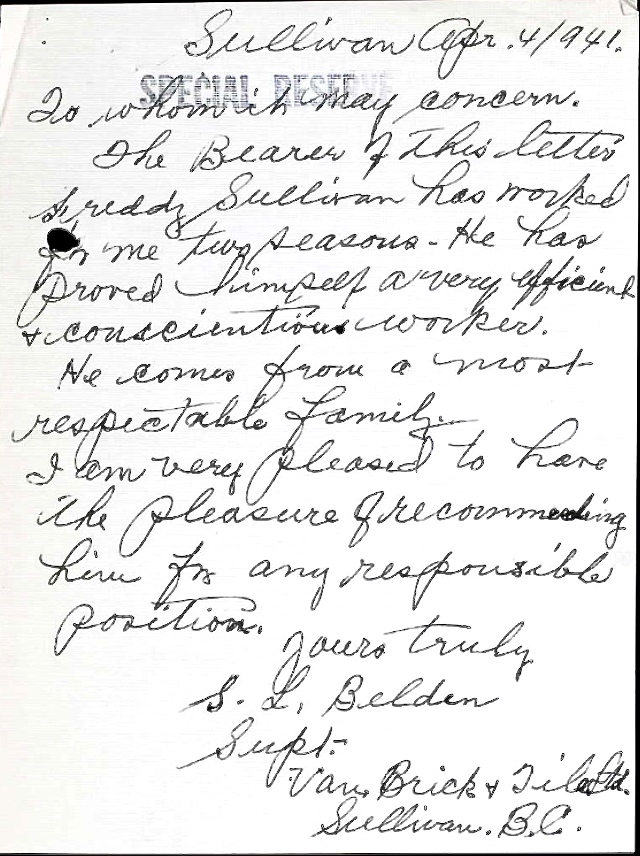 Sullivan Apr. 4/941.
SPECIAL RESERVE
To whom it may concern.
The Bearer of this letter
Freddy Sullivan has worked
for me two seasons - He has
proved himself a very efficient
& conscientious worker.
He comes from a most
respectable family.
I am very pleased to have
the pleasure of recommending
him for any responsible
position.
Yours truly
S. L. Belden
Supt.
Van. Brick & Tile Ltd.
Sullivan. B.C.